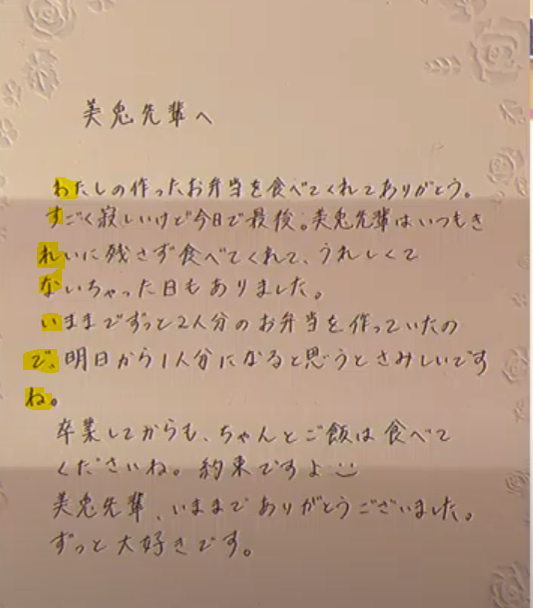 美兎先輩へ
わたしの作ったお弁当を食べてくれてありがとう。
すごく寂しいけど今日で最後。美兎先輩はいつもき
れいに残さず食べてくれて、うれしくて
ないちゃった日もありました。
いままでずっと2人分のお弁当を作っていたの
で、明日から1人分になると思うとさみしいです
ね。
卒業してからも、ちゃんとご飯は食べて
くださいね。約束ですよ
美兎先輩、いままでありがとうございました。
ずっと大好きです。